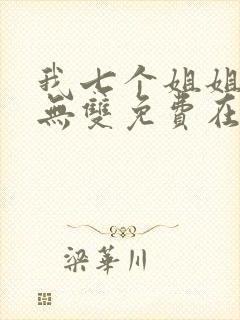 我七个姐姐
無雙免費在
梁華川